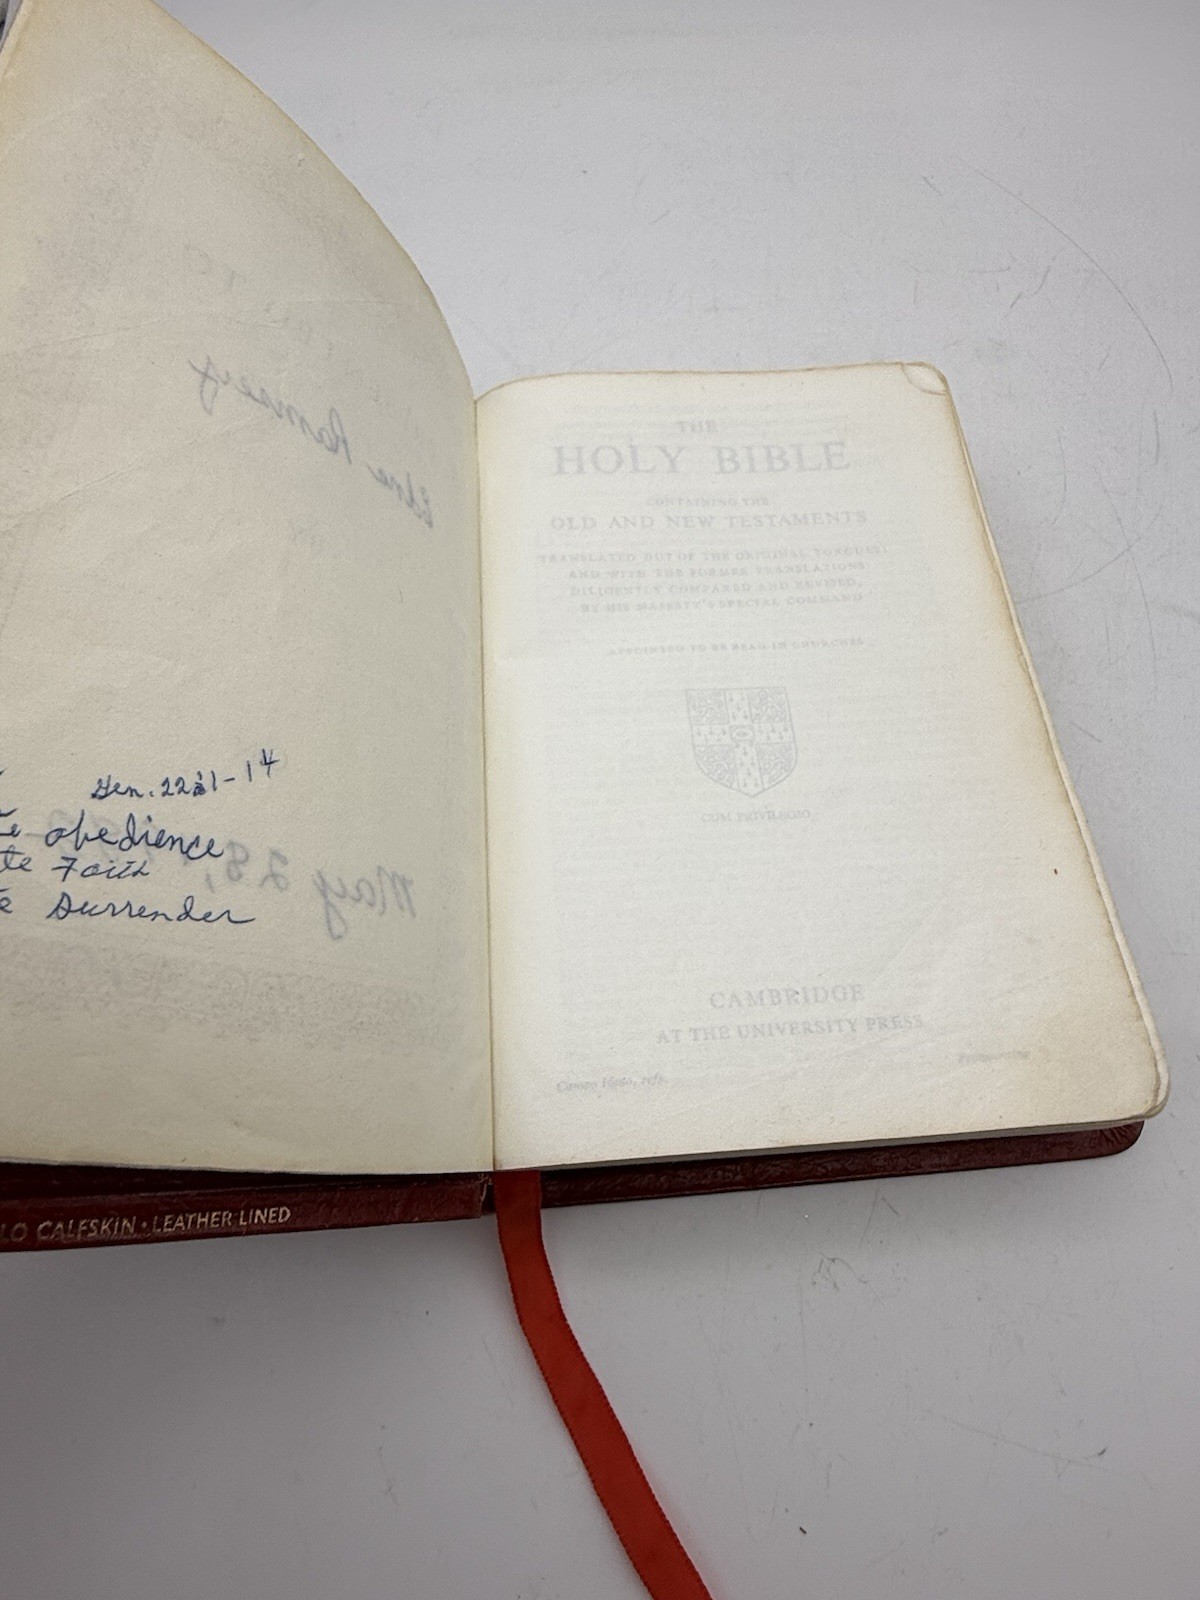 Ramsey
Gen. 22:1-14
obedience
Faith
Surrender
May 28,
LO CALFSKIN · LEATHER LINED
THE
HOLY BIBLE
CONTAINING THE
OLD AND NEW TESTAMENTS
TRANSLATED OUT OF THE ORIGINAL TONGUES:
AND WITH THE FORMER TRANSLATIONS
DILIGENTLY COMPARED AND REVISED,
BY HIS MAJESTY'S SPECIAL COMMAND
APPOINTED TO BE READ IN CHURCHES
CUM PRIVILEGIO
CAMBRIDGE
AT THE UNIVERSITY PRESS
Cameo refs.
Pronouncing